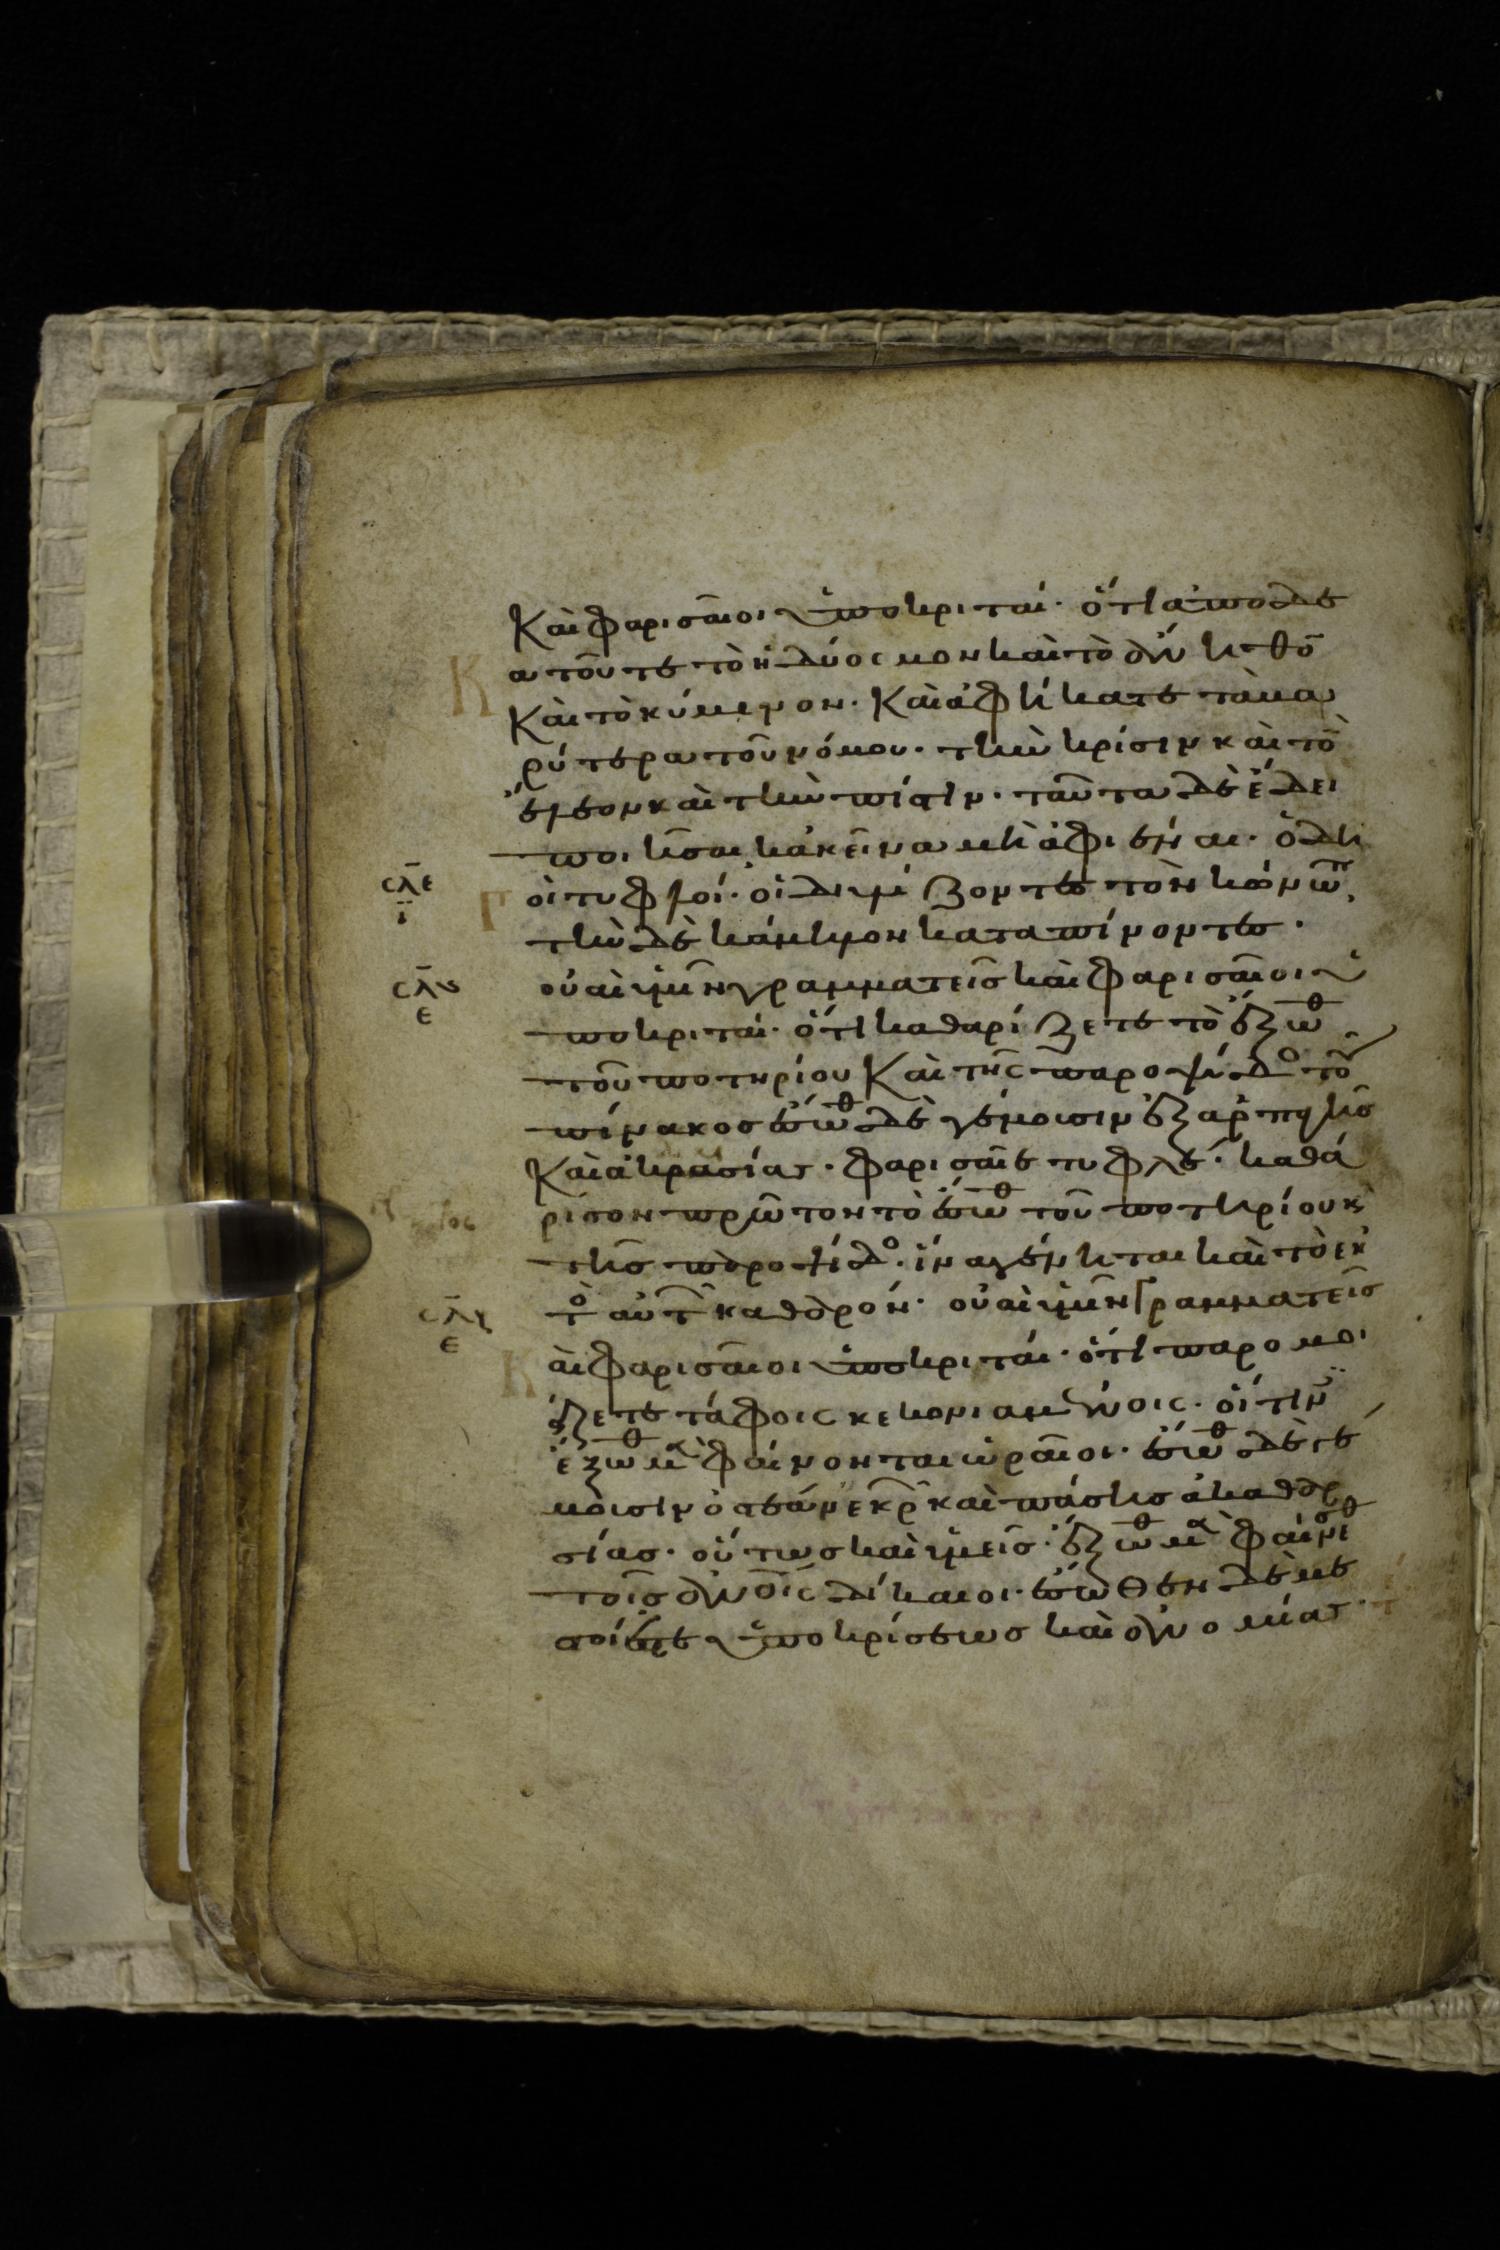 Καὶ φαρισαῖοι ὑποκριταί· ὅτι ἀποδε
κατοῦτε τὸ ἡδύοσμον καὶ τὸ ἄνηθο
Καὶ τὸ κύμινον· Καὶ ἀφήκατε τὰ βα
ρύτερα τοῦ νόμου· τὴν κρίσιν καὶ τὸ
ἔλεον καὶ τὴν πίστιν· ταῦτα δὲ ἔδει
ποιῆσαι κἀκεῖνα μὴ ἀφιέναι· ὁδη
σλε
ι
οὶ τυφλοί· οἱ διυλίζοντες τὸν κώνωπ
τὴν δὲ κάμηλον καταπίνοντες·
σλϛ
ε
οὐαὶ ὑμῖν γραμματεῖς καὶ φαρισαῖοι ὑ
ποκριταί· ὅτι καθαρίζετε τὸ ἔξωθ
τοῦ ποτηρίου Καὶ τῆς παροψίδο τοῦ
πίνακος ἔσωθ δὲ γέμουσιν ἐξ ἁρπαγῆς
Καὶ ἀκρασίας· φαρισαῖε τυφλέ· καθά
ρισον πρῶτον τὸ ἔσωθ τοῦ ποτηρίου κ
τῆς παροψίδο· ἵνα γένηται καὶ τὸ ἐκ
σλζ
ε
τὸ αὐτ καθαρόν· οὐαὶ ὑμῖν Γραμματεῖς
Κ
αὶ φαρισαῖοι ὑποκριταί· ὅτι παρομοι
άζετε τάφοις κεκονιαμένοις· οἵτιν
ἔξωθ μ φαίνονται ὡραῖοι· ἔσωθ δὲ γέ
μουσιν ὀστέων νεκρ καὶ πάσης ἀκαθαρ
σίας· οὕτως καὶ ὑμεῖς· ἔξωθ μ φαίνεσθ
τοῖς ἀνοῖς δίκαιοι· ἔσωθεν δὲ με
στοί ἐστε ὑποκρίσεως καὶ ἀνομίας·